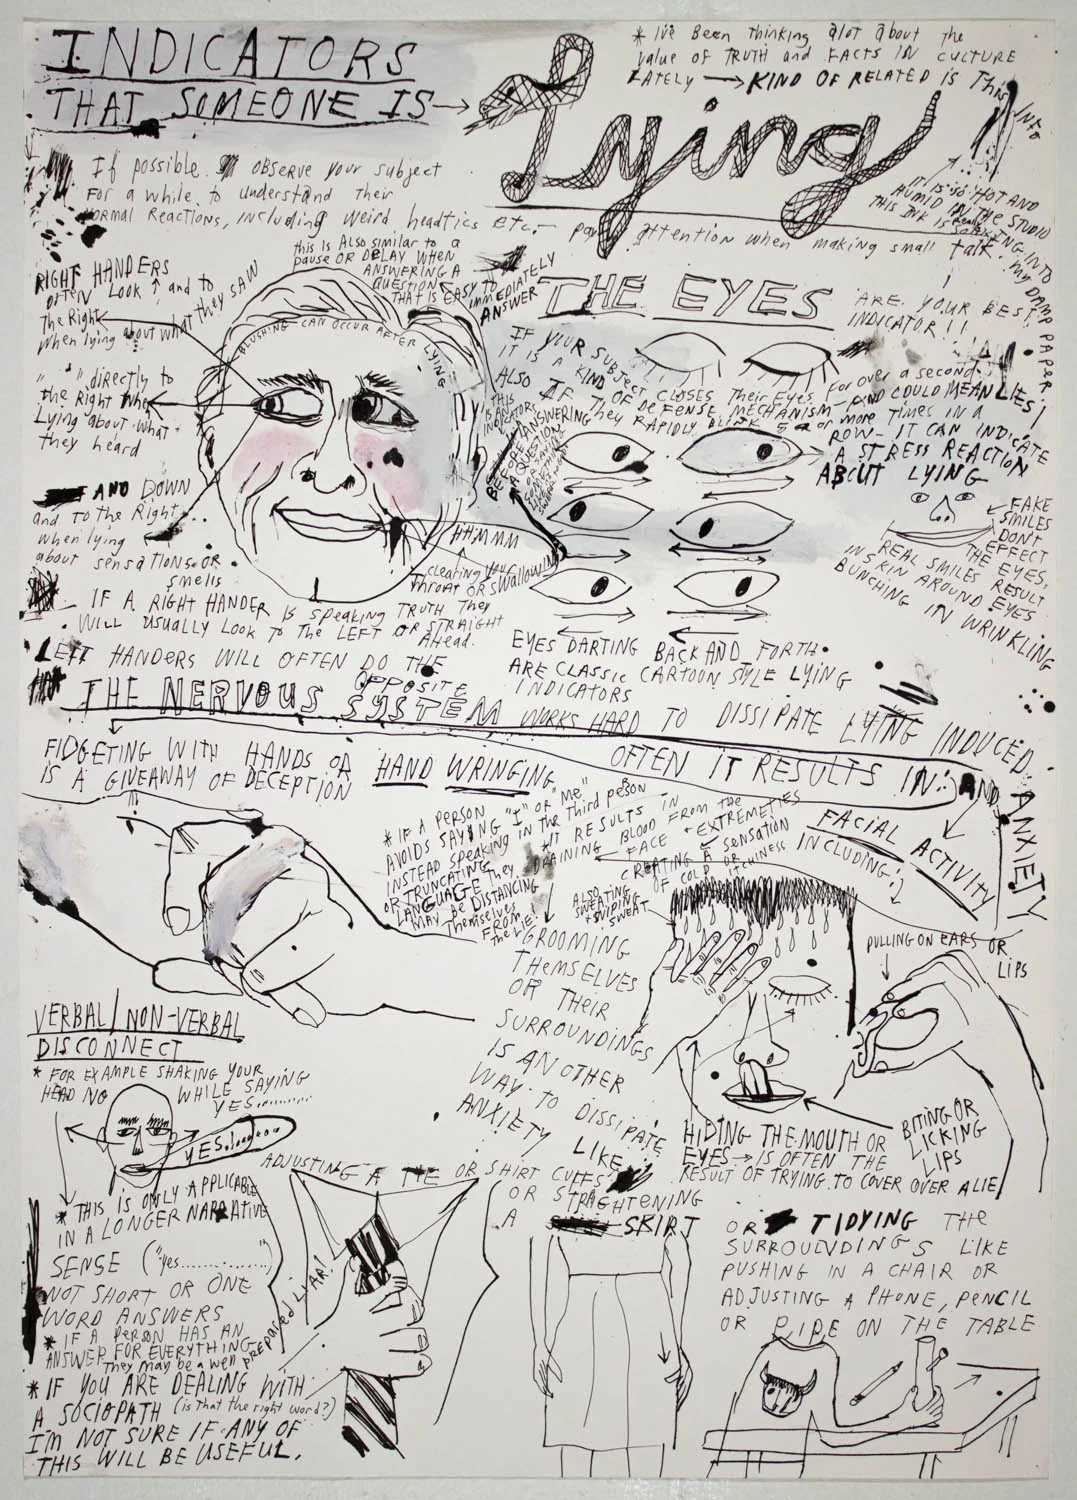 INDICATORS
THAT SOMEONE IS
Lying
* I've Been thinking alot about the
value of TRUTH and FACTS IN CULTURE
LATELY → KIND OF RELATED IS This
INto
IT IS SO HOT AND
HUMID IN THE STUDIO
THIS INK IS really SOAKING INTO
MY DAMP PAPER.
If possible observe your subject
For a while to understand their
normal Reactions, including weird headtics etc. – pay attention when making small talk.
this is Also similar to a
pause OR DELAY WHEN
ANSWERING A
QUESTION
THAT IS EASY TO
IMMEDIATELY
ANSWER
RIGHT HANDERS
OFTEN LOOK ↑ and to
The Right
when lying about what they SAW
" " directly to
the Right when
Lying about what
they heard
AND DOWN
and to the Right
when lying
about sensations OR
smells
BLUSHING CAN OCCUR AFTER LYING
HHMMM
clearing your
throat OR SWALLOWING
BEFORE ANSWERING
A QUESTION
IF A RIGHT HANDER is speaking TRUTH They
WILL usually Look to the LEFT OR STRAIGHT
AHead.
LEFT HANDERS WILL OFTEN DO THE
OPPOSITE
THE EYES
ARE YOUR BEST
INDICATOR!!
IF YOUR SUBJECT CLOSES Their EYES For over a second
IT IS A KIND OF DEFENSE MECHANISM – AND COULD MEAN LIES!
ALSO IF They RAPIDLY BLINK 5 or more Times IN A
ROW – IT CAN INDICATE
A STRESS REACTION
ABOUT LYING
FAKE
SMILES
DON'T
EFFECT
THE EYES.
REAL SMILES RESULT
IN SKIN AROUND EYES
BUNCHING IN WRINKLING
EYES DARTING BACK AND FORTH
ARE CLASSIC CARTOON STYLE LYING
INDICATORS
THE NERVOUS SYSTEM WORKS HARD TO DISSIPATE LYING INDUCED ANXIETY
OFTEN IT RESULTS IN:
FIDGETING WITH HANDS OR HAND WRINGING
IS A GIVEAWAY OF DECEPTION
AND
FACIAL ACTIVITY
INCLUDING:
* IF A PERSON
AVOIDS SAYING "I" OR "Me"
INSTEAD speaking in the Third person
OR TRUNCATING
LANGUAGE They
MAY BE DISTANCING
Themselves
FROM
the LIE!
*IT RESULTS IN
DRAINING BLOOD FROM the
FACE + EXTREMETIES
CREATING A sensation
OF COLD OR
ITCHINESS
ALSO
SWEATING
+ WIPING
SWEAT
GROOMING
THEMSELVES
OR THEIR
SURROUNDINGS
IS ANOTHER
WAY TO DISSIPATE
ANXIETY LIKE
ADJUSTING A TIE OR SHIRT CUFFS
OR STRAIGHTENING
A SKIRT
PULLING ON EARS OR
LIPS
BITING OR
LICKING
LIPS
HIDING THE MOUTH OR
EYES → IS OFTEN THE
RESULT OF TRYING TO COVER OVER A LIE
VERBAL/NON-VERBAL
DISCONNECT
* FOR EXAMPLE SHAKING YOUR
HEAD NO WHILE SAYING
YES..........
* THIS IS ONLY APPLICABLE
IN A LONGER NARRATIVE
SENSE ("yes.............")
NOT SHORT OR ONE
WORD ANSWERS
* IF A PERSON HAS AN
ANSWER FOR EVERYTHING
They may be a well prepared LIAR!
* IF YOU ARE DEALING WITH
A SOCIOPATH (is that the right word?)
I'M NOT SURE IF ANY OF
THIS WILL BE USEFUL.
OR TIDYING THE
SURROUNDINGS LIKE
PUSHING IN A CHAIR OR
ADJUSTING A PHONE, PENCIL
OR PIPE ON THE TABLE